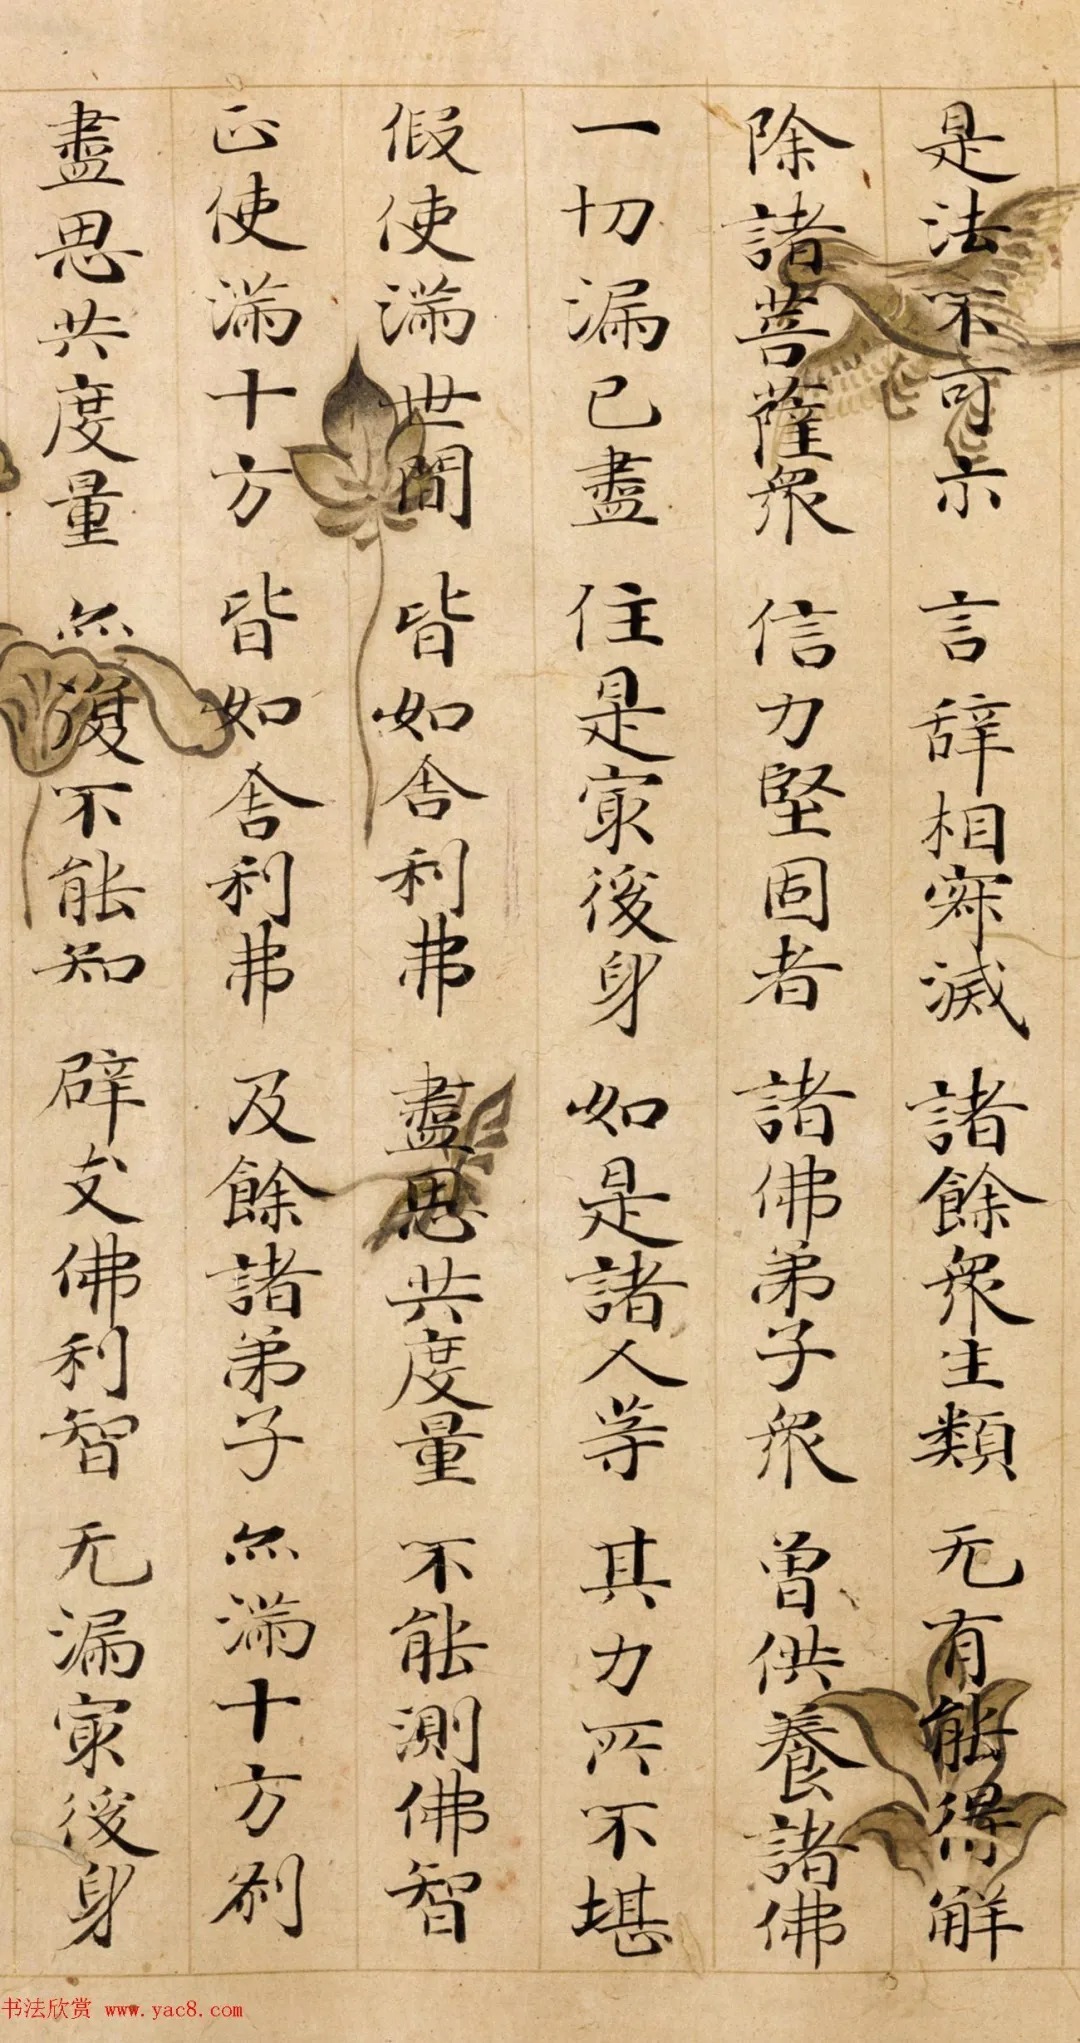 是法不可示 言辞相寂滅 諸餘衆生類 无有能得解
除諸菩薩衆 信力堅固者 諸佛弟子衆 曾供養諸佛
一切漏已盡 住是㝡後身 如是諸人等 其力所不堪
假使滿世間 皆如舍利弗 盡思共度量 不能測佛智
正使滿十方 皆如舍利弗 及餘諸弟子 亦滿十方刹
盡思共度量 亦復不能知 辟支佛利智 无漏㝡後身
书法欣赏 www.yac8.com